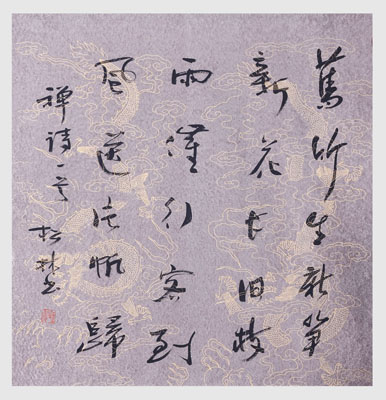 舊竹生新筍
新花长旧枝
雨催行客到
風送片帆歸
禪詩一首 松林书